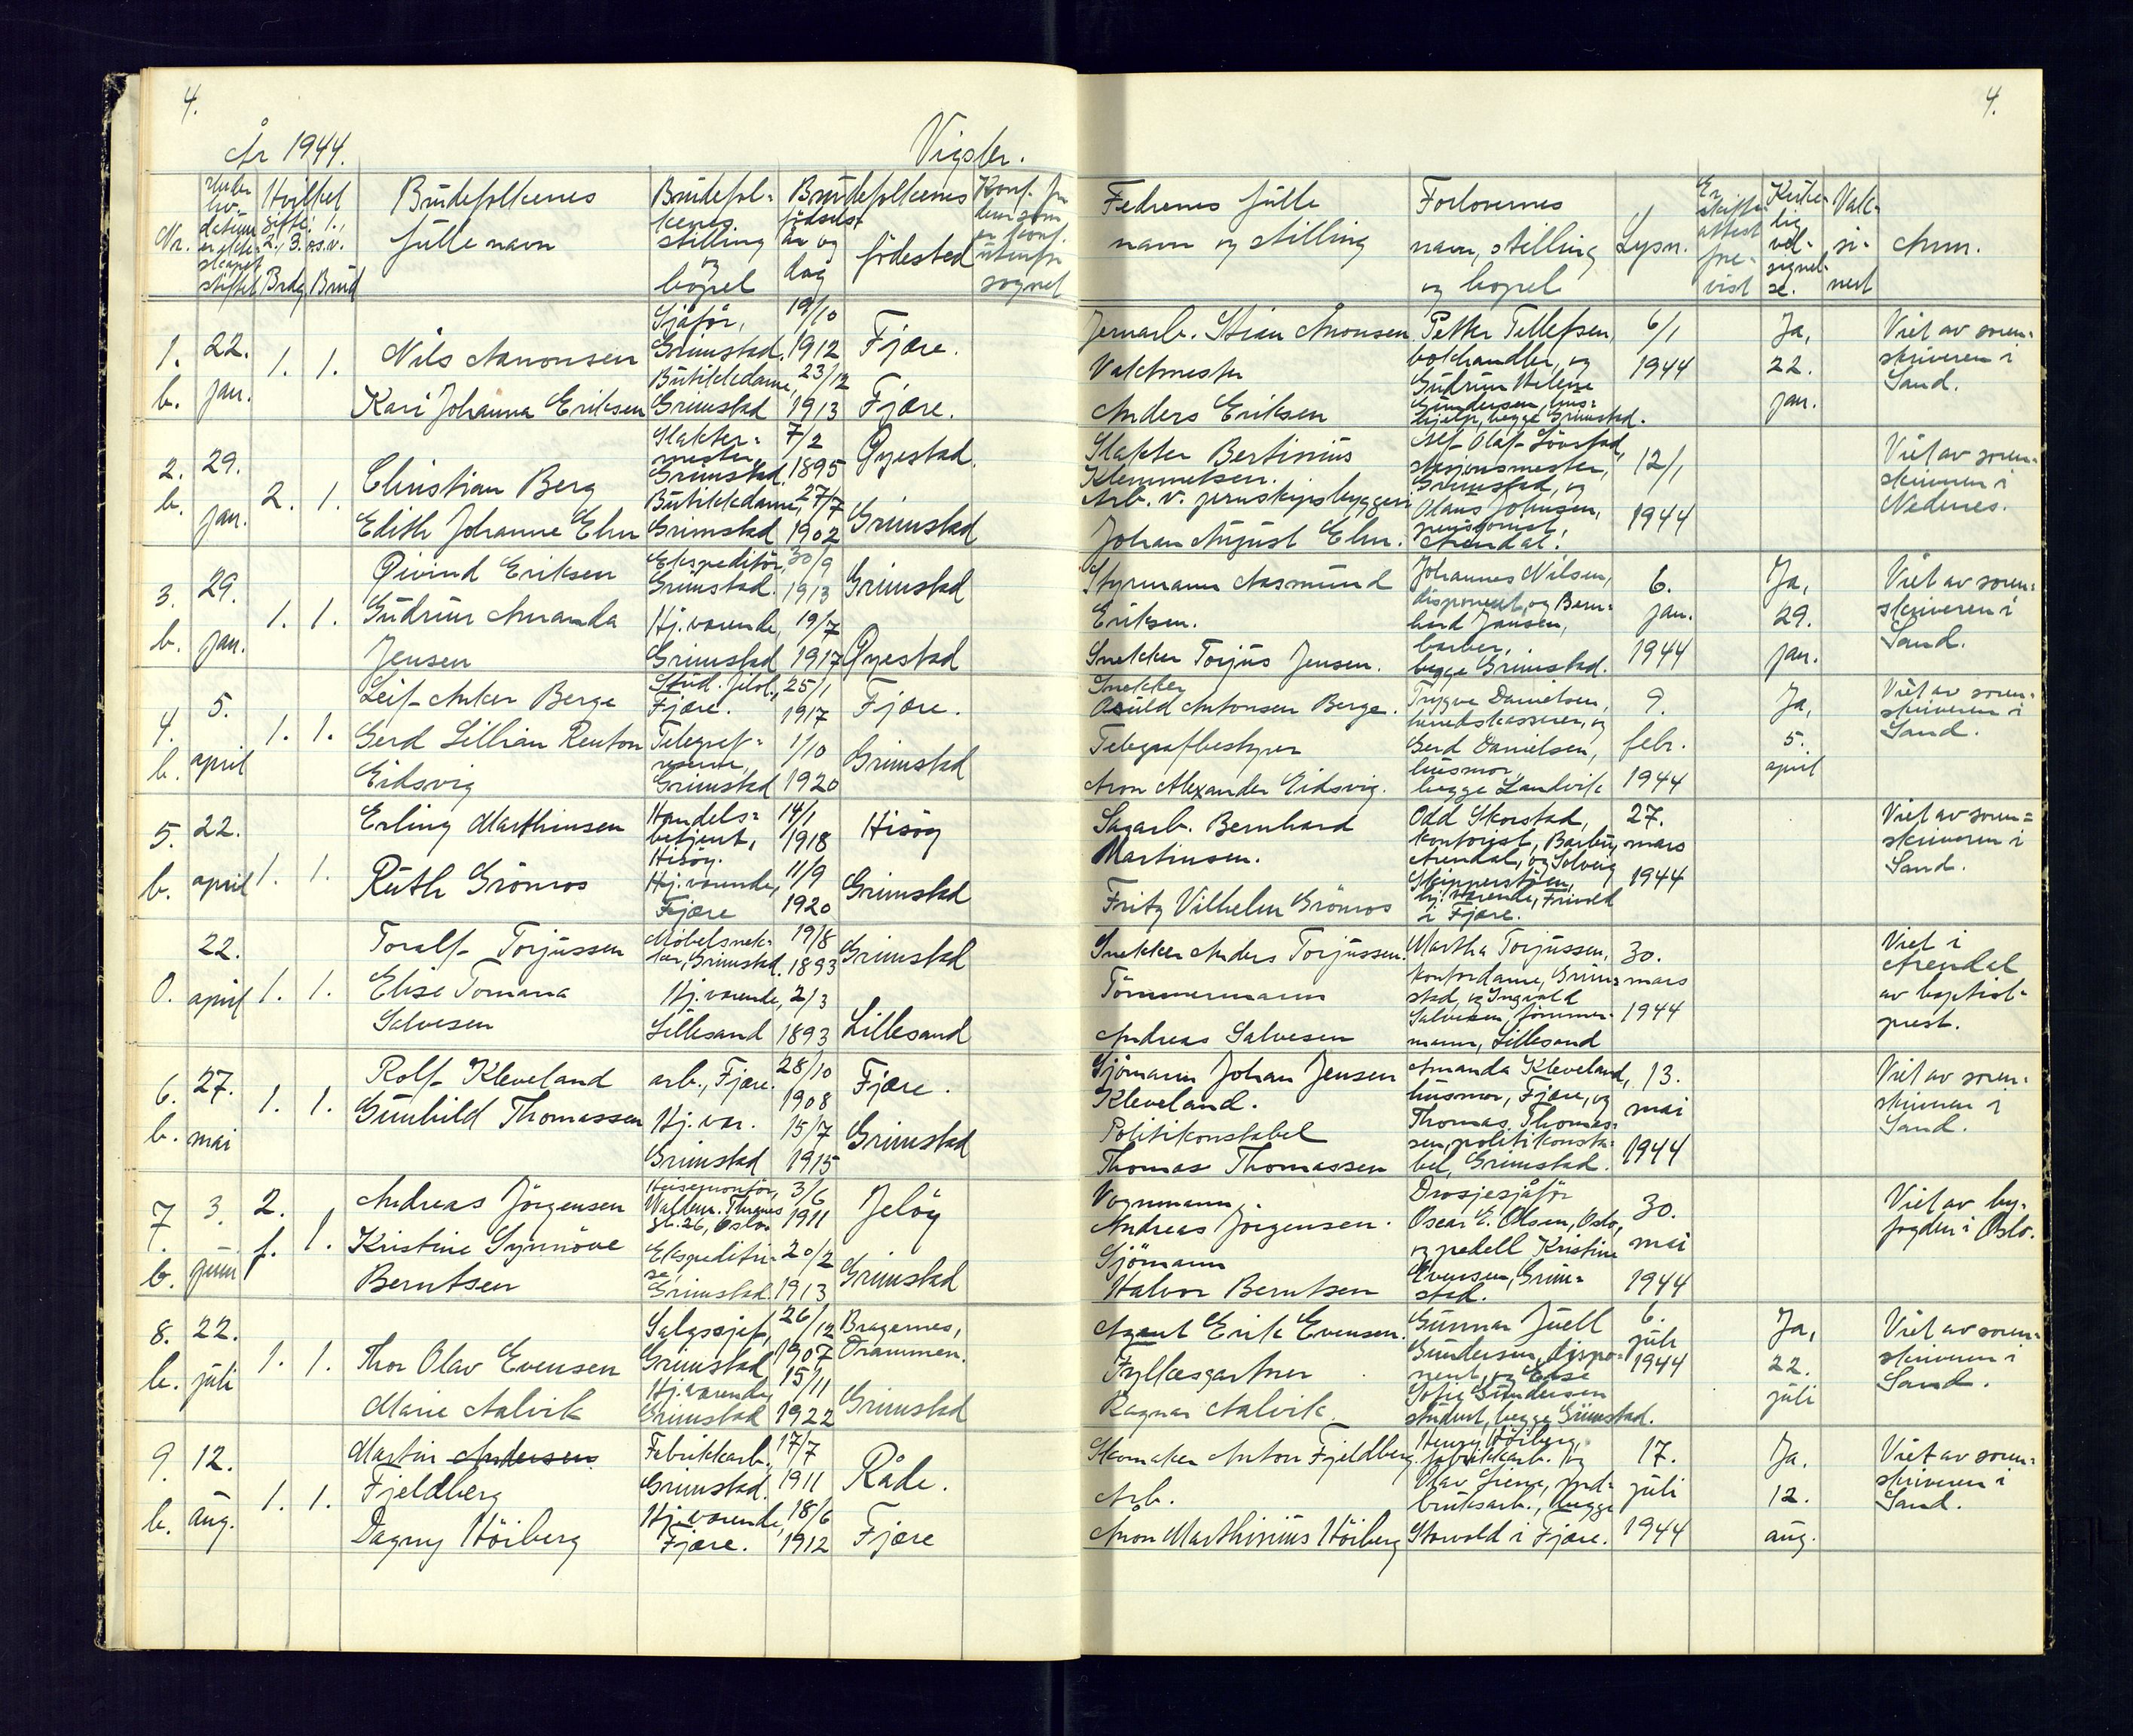 4.
År 1944.
Vigsler.
4.
Nr.
Hvilket gifte: 1., 2., 3. os.v.
Brdg. Brud
Brudefolkenes fulle navn
Brudefolkenes stilling og bopel
Brudefolkenes fødselsår og dag
fødested
Fedrenes fulle navn og stilling
Forlovernes navn, stilling og bopel
Lysn.
Er skifteattest frevist
Kirkelig velsignelse.
Vaksinert
Anm.
1. b. 22. jan. 1. 1.
Nils Aanonsen
Sjåför, Grimstad. 19/10 1912 Fjære.
Kari Johanna Eriksen
Butikkdame, Grimstad 23/12 1913 Fjære.
Jernarb. Stian Aanonsen
Vaktmester
Anders Eriksen
Petter Tellefsen, bokhandler, og Gudrun Helene Gundersen, hushjelp, begge Grimstad.
6/1 1944
Ja, 22. jan.
Viet av sorenskriveren i Sand.
2. b. 29. jan. 2. 1.
Christian Berg
Slaktermester, Grimstad. 7/2 1895 Øyestad.
Edith Johanne Elm
Butikkdame, Grimstad 27/7 1902 Grimstad
Slakter Bertinius Klemmetsen.
Arb. v. jernskipsbyggeri
Johan August Elm.
Alf Olaf Lövstad, stasjonsmester, Grimstad, og Olaus Johnsen, pensjonist, Arendal.
12/1 1944
Viet av sorenskriveren i Nedenes.
3. b. 29. jan. 1. 1.
Öivind Eriksen
Ekspeditör, Grimstad. 30/9 1913 Grimstad
Gudrun Amanda Jensen
Hj. værende, Grimstad 19/7 1917 Øyestad
Styrmann Aasmund Eriksen.
Snekker Torjus Jensen.
Johannes Nilsen, disponent, og Bernhard Jansen, barber, begge Grimstad.
6. jan. 1944
Ja, 29. jan.
Viet av sorenskriveren i Sand.
4. b. 5. april 1. 1.
Leif Anker Berge
Stud. filol., Fjære. 25/1 1917 Fjære.
Gerd Lillian Renton Eidsvig
Grimstad 1/10 1920 Grimstad
Snekker
Osuld Antonsen Berge.
Telegrafbestyrer
Aron Alexander Eidsvig.
Trygve Danielsen, herredskasserer, og Gerd Danielsen, husmor, begge Landvik
9. febr. 1944
Ja, 5. april
Viet av sorenskriveren i Sand.
5. b. 22. april 1. 1.
Erling Marthinsen
Handelsbetjent, Hisöy. 14/1 1918 Hisöy
Ruth Grömos
Hj. værende, Fjære 11/9 1920 Grimstad
Sagarb. Bernhard Martinsen.
Fritz Vilhelm Grömos
Odd Skorstad, kontorist, Barbu, Arendal, og Solveig hj. værende, Frivold i Fjære.
27. mars 1944
Viet av sorenskriveren i Sand.
0. 22. april 1. 1.
Toralf Torjussen
Möbelsnekker, Grimstad. 19/8 1893 Grimstad
Elise Tomana Salvesen
Hj. værende, Lillesand 2/3 1893 Lillesand
Snekker Anders Torjussen.
Tömmermann
Andreas Salvesen
Martha Torjussen, kontordame, Grimstad, og Ingvald Salvesen, tömmermann, Lillesand
30. mars 1944
Viet i Arendal av baptistprest.
6. b. 27. mai 1. 1.
Rolf Kleveland
arb., Fjære. 28/10 1908 Fjære.
Gunhild Thomassen
Hj. vær. Grimstad 15/7 1915 Grimstad
Sjömann Johan Jensen Kleveland.
Politikonstabel
Thomas Thomassen
Amanda Kleveland, husmor, Fjære, og Thomas Thomassen, politikonstabel, Grimstad.
13. mai 1944
Viet av sorenskriveren i Sand.
7. b. 3. juni 2. f. 1.
Andreas Jörgensen
Heisemontör, Waldem. Thranes gt. 26, Oslo. 3/6 1911 Jelöy
Kristine Synnöve Berntsen
Ekspeditrise, Grimstad. 20/2 1913 Grimstad
Vognmann
Andreas Jörgensen.
Sjömann
Halvor Berntsen
Drosjesjåför Oscar E. Olsen, Oslo, og pedell Kristine Evensen, Grimstad.
30. mai 1944
Viet av byfogden i Oslo.
8. b. 22. juli 1. 1.
Thor Olav Evensen
Salgssjef, Grimstad 26/12 1907 Bragernes, Drammen.
Marie Aalvik
Hj. værende, Grimstad 15/11 1922 Grimstad
Agent Erik Evensen.
Fylkesgartner
Ragnar Aalvik.
Gunnar Juell Gundersen, disponent, og Else Sofie Gundersen student, begge Grimstad.
6. juli 1944
Ja, 22. juli
Viet av sorenskriveren i Sand.
9. b. 12. aug. 1. 1.
Martin Andersen Fjeldberg
Fabrikkarb., Grimstad. 17/7 1911 Råde.
Dagny Höiberg
Hj. værende, Fjære. 18/6 1912 Fjære
Skomaker Anton Fjeldberg.
Arb.
Aron Marthinius Höiberg
Henry Höiberg, fabrikkarb., og Olav jordbruksarb., begge Storvold i Fjære.
17. juli 1944
Ja, 12. aug.
Viet av sorenskriveren i Sand.